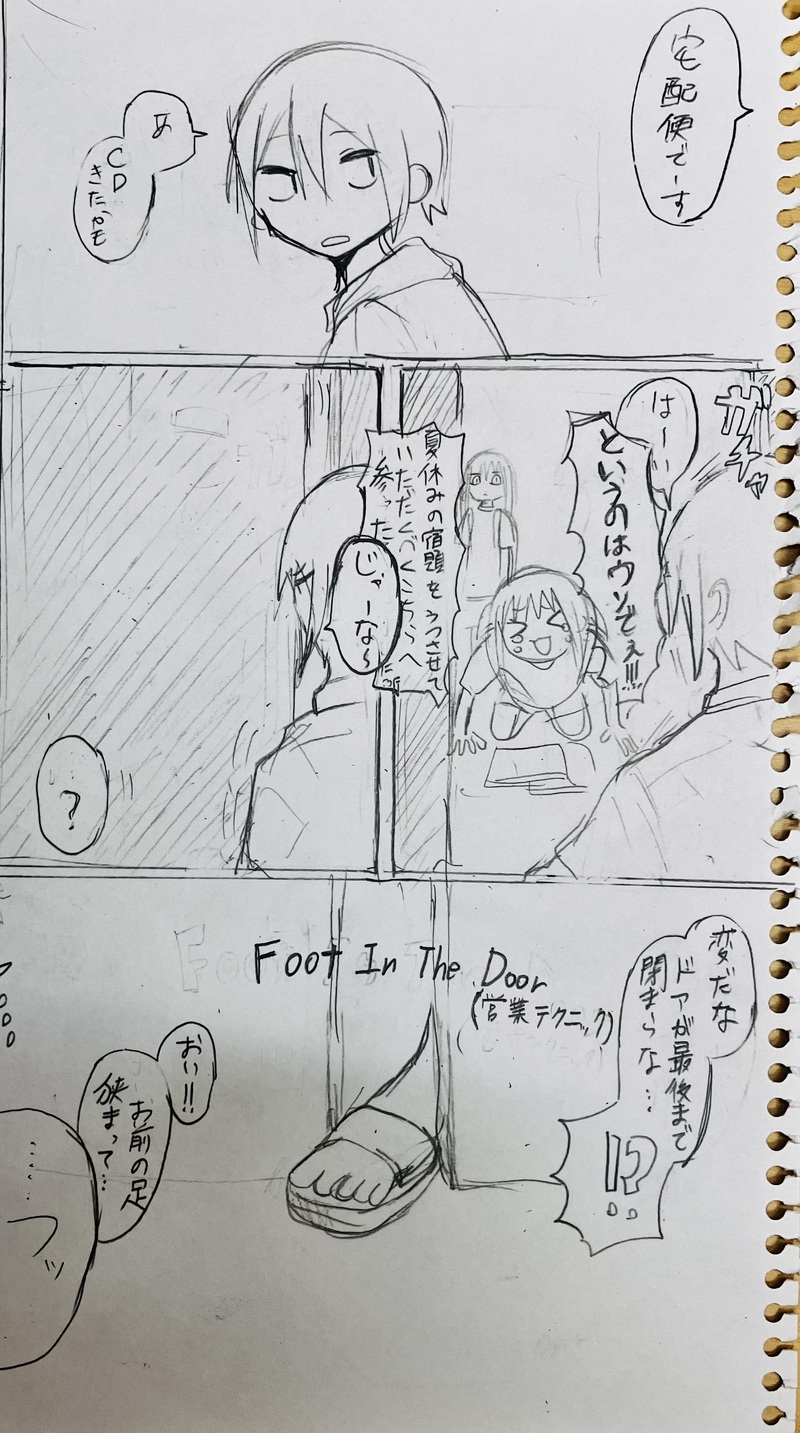 宅配便でーす
あ
CD
きたかも
ガチャ
はーい
というのはウソでぇ!!!
夏休みの宿題をうつさせて
いただくべくこちらへ
参った
じゃーな〜
?
変だな
ドアが最後まで
閉まらな…
!?
Foot In The Door
(営業テクニック)
おい!!
お前の足
狭まって…
……フッ